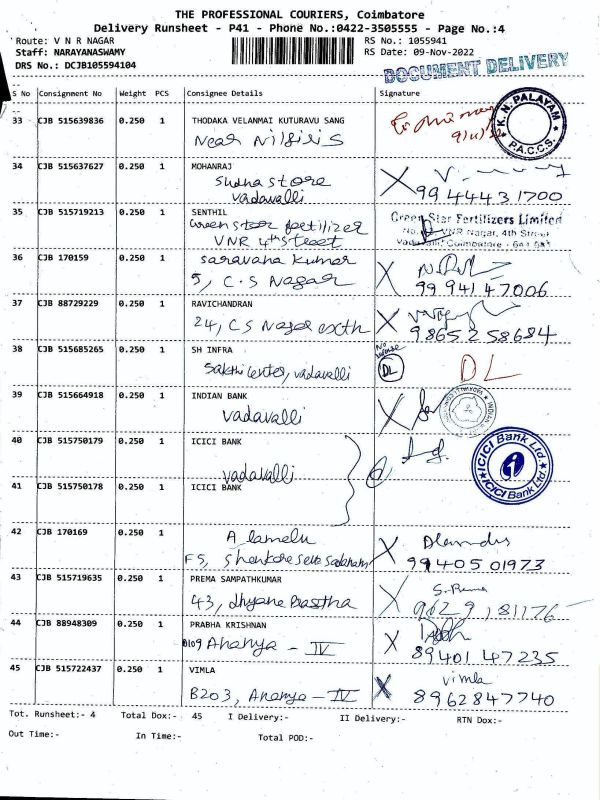 THE PROFESSIONAL COURIERS, Coimbatore
Delivery Runsheet - P41 - Phone No.:0422-3505555 - Page No.:4
Route: V N R NAGAR
RS No.: 1055941
Staff: NARAYANASWAMY
RS Date: 09-Nov-2022
DRS No.: DCJB105594104
DOCUMENT DELIVERY
S No Consignment No Weight PCS Consignee Details Signature
33 CJB 515639836 0.250 1 THODAKA VELANMAI KUTURAVU SANG
Near Nilgiris
K.N. PALAYAM
P.A.C.C.S.
34 CJB 515637627 0.250 1 MOHANRAJ
Sudha store
vadavalli
99 444 3 1700
35 CJB 515719213 0.250 1 SENTHIL
Green Star Fertilizers Limited
Green Star fertilizer
VNR Nagar, 4th Street
VNR 4th Street
36 CJB 170159 0.250 1 Saravana kumar
5, C.S Nagar
99 941 47006
37 CJB 88729229 0.250 1 RAVICHANDRAN
24, CS Nagar exth
9865 2 58684
38 CJB 515685265 0.250 1 SH INFRA
Sakthi center, vadavalli
DL
DL
39 CJB 515664918 0.250 1 INDIAN BANK
vadavalli
40 CJB 515750179 0.250 1 ICICI BANK
vadavalli
ICICI Bank Ltd.
ICICI Bank Ltd.
41 CJB 515750178 0.250 1 ICICI BANK
42 CJB 170169 0.250 1 Alamelu
F5,
99405 01973
43 CJB 515719635 0.250 1 PREMA SAMPATHKUMAR
S. Prema
43, dhyana Prastha
9629 181176
44 CJB 88948309 0.250 1 PRABHA KRISHNAN
B109 Ananya - IV
89401 47235
45 CJB 515722437 0.250 1 VIMLA
vimla
B203, Ananya - IV
8962847740
Tot. Runsheet:- 4 Total Dox:- 45 I Delivery:- II Delivery:- RTN Dox:-
Out Time:- In Time:- Total POD:-